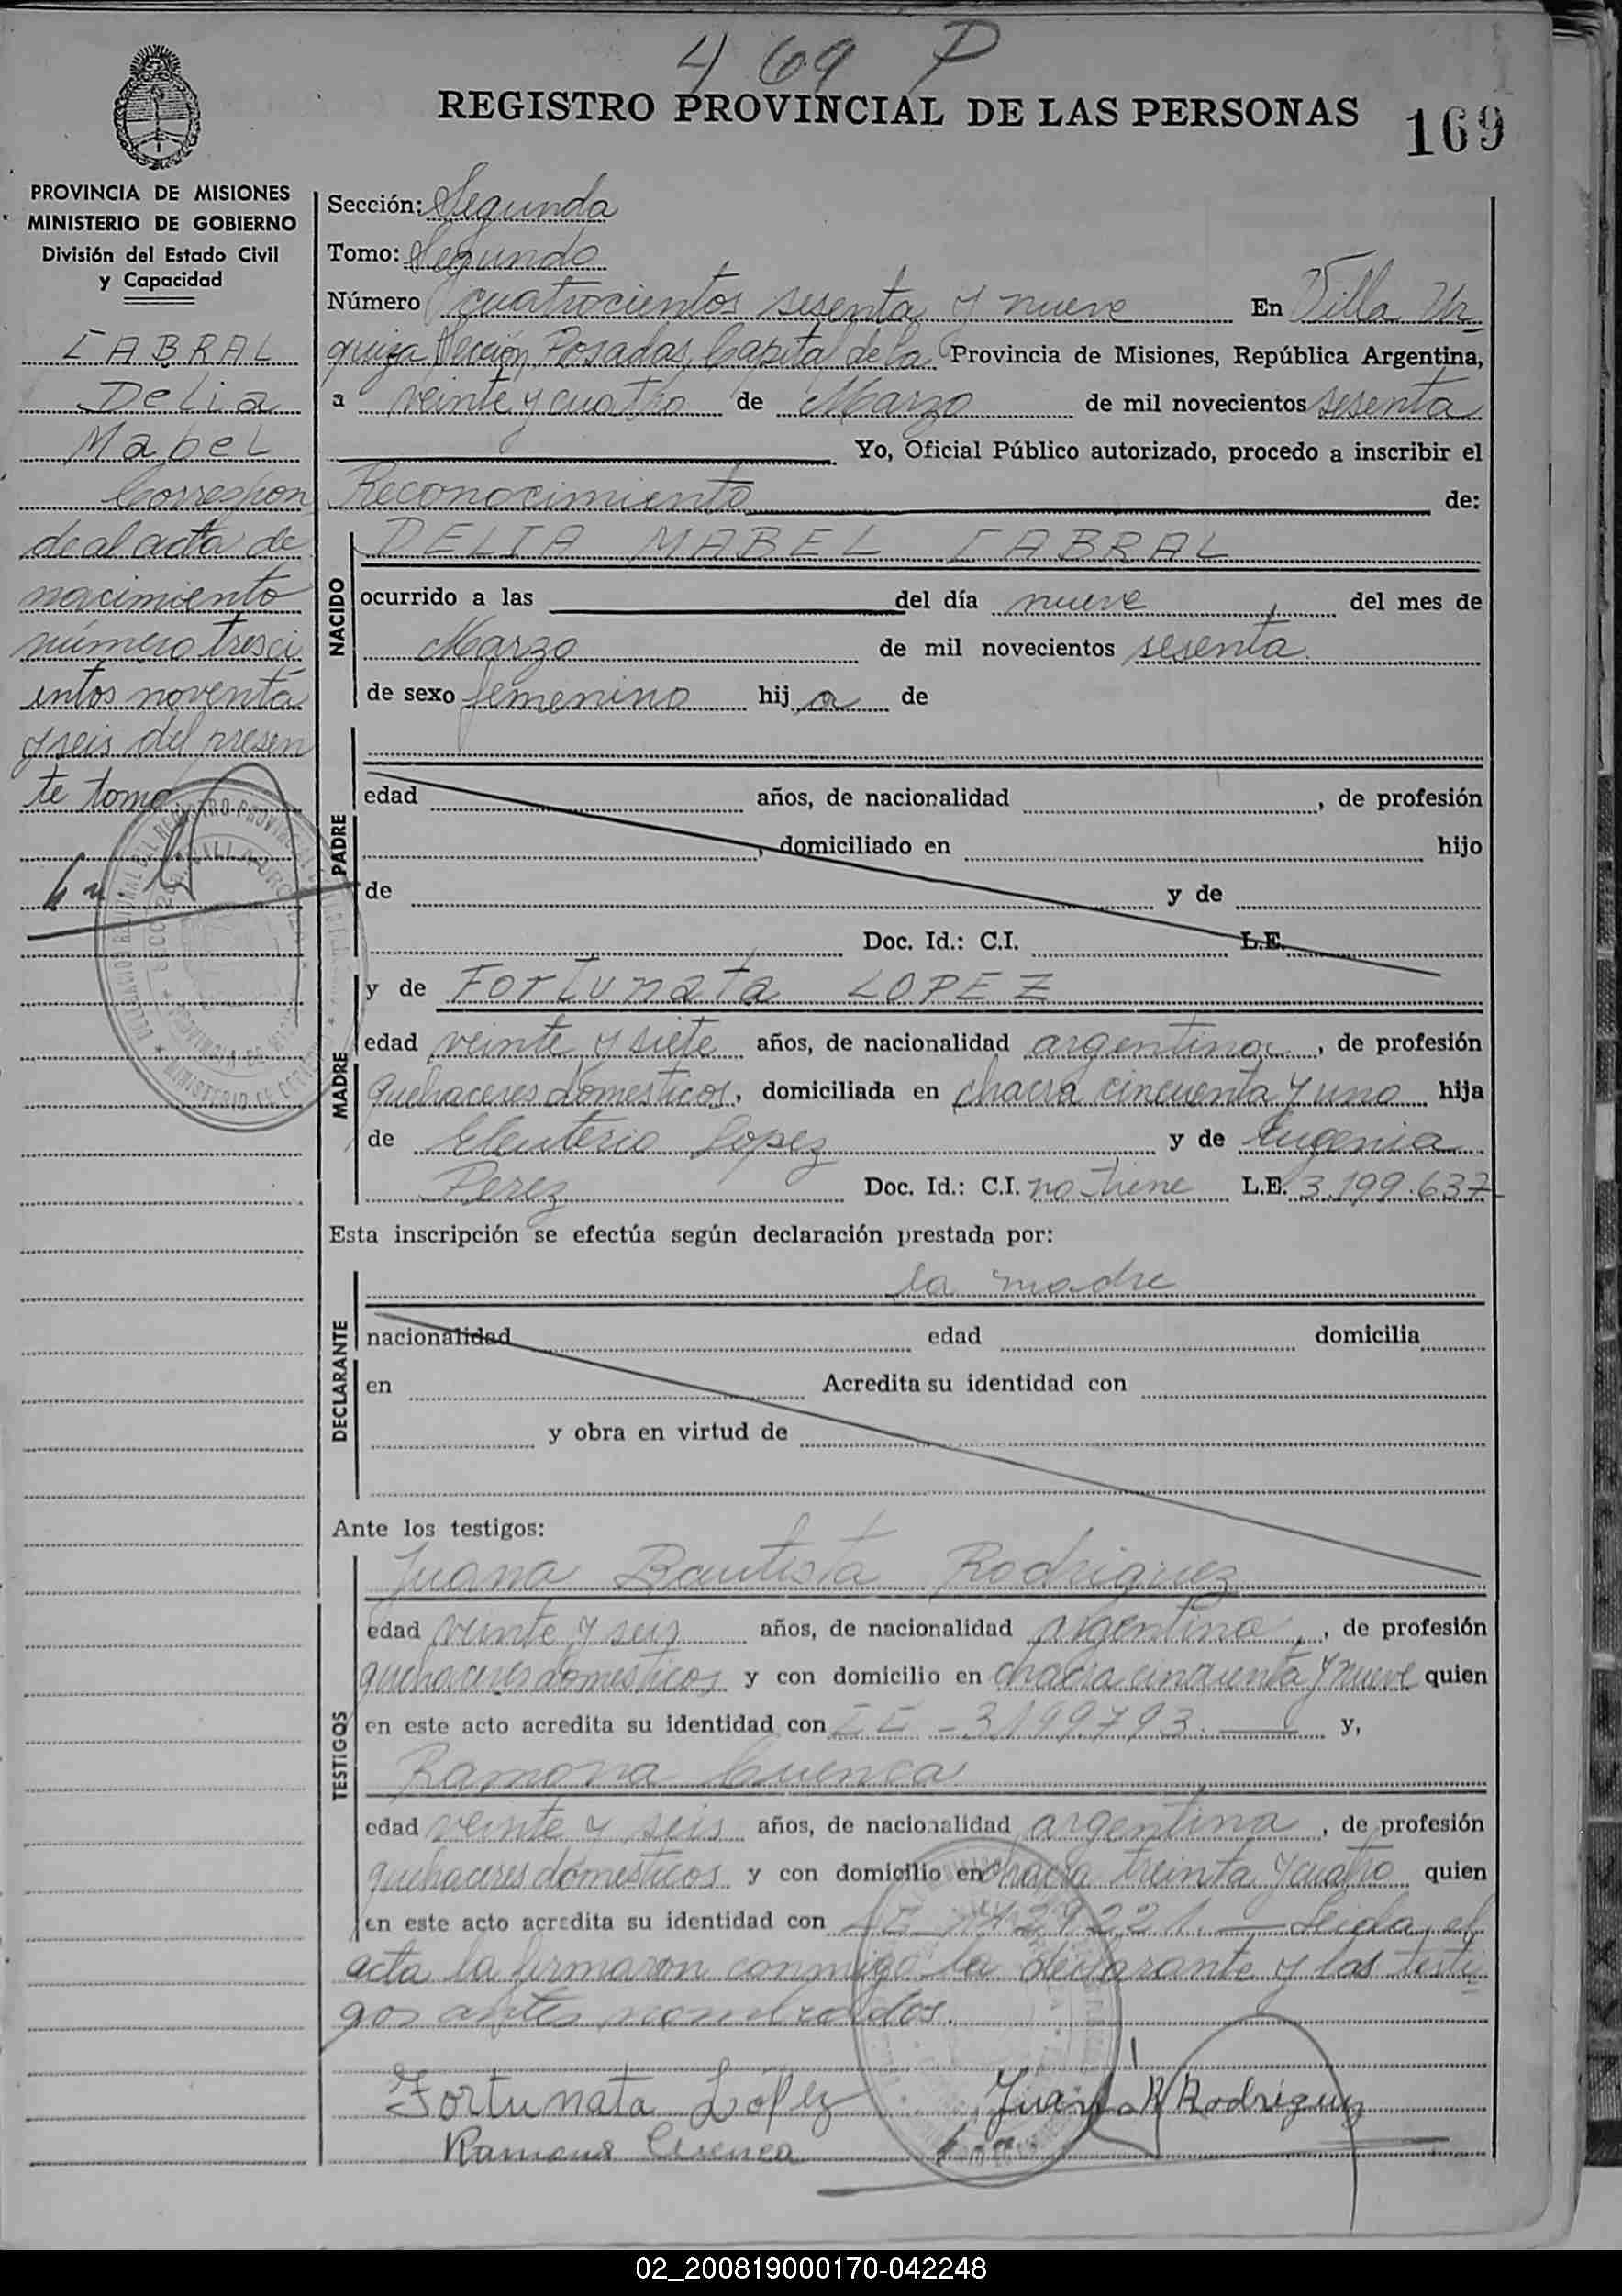 469 P
REGISTRO PROVINCIAL DE LAS PERSONAS
169
PROVINCIA DE MISIONES
MINISTERIO DE GOBIERNO
División del Estado Civil
y Capacidad
CABRAL
Delia
Mabel
Correspon
de al acta de
nacimiento
número tresci
entos noventa
y seis del presen
te tomo.
Sección: Segunda
Tomo: Segundo
Número cuatrocientos sesenta y nueve En Villa Ur
quiza Sección Posadas, Capital de la Provincia de Misiones, República Argentina,
a veinte y cuatro de Marzo de mil novecientos sesenta
Yo, Oficial Público autorizado, procedo a inscribir el
Reconocimiento de:
NACIDO
DELIA MABEL CABRAL
ocurrido a las del día nueve, del mes de
Marzo de mil novecientos sesenta.
de sexo femenino hij a de
PADRE
edad años, de nacionalidad , de profesión
, domiciliado en hijo
de y de
Doc. Id.: C.I. L.E.
MADRE
y de Fortunata LOPEZ
edad veinte y siete años, de nacionalidad argentina, de profesión
quehaceres domesticos, domiciliada en chacra cincuenta y uno hija
de Eleuterio Lopez y de Eugenia
Perez Doc. Id.: C.I. no tiene L.E. 3.199.637
Esta inscripción se efectúa según declaración prestada por:
DECLARANTE
la madre
nacionalidad edad domicilia
en Acredita su identidad con
y obra en virtud de
Ante los testigos:
TESTIGOS
Juana Bautista Rodriguez
edad veinte y seis años, de nacionalidad argentina, de profesión
quehaceres domesticos y con domicilio en chacra cincuenta y nueve quien
en este acto acredita su identidad con 3199793. y,
Ramona Cuenca
edad veinte y seis años, de nacionalidad argentina, de profesión
quehaceres domesticos y con domicilio en chacra treinta y cuatro quien
en este acto acredita su identidad con Leida el
acta la firmaron conmigo la declarante y los testi
gos antes nombrados.
Fortunata López Juana B Rodriguez
Ramona Cuenca
02_200819000170-042248